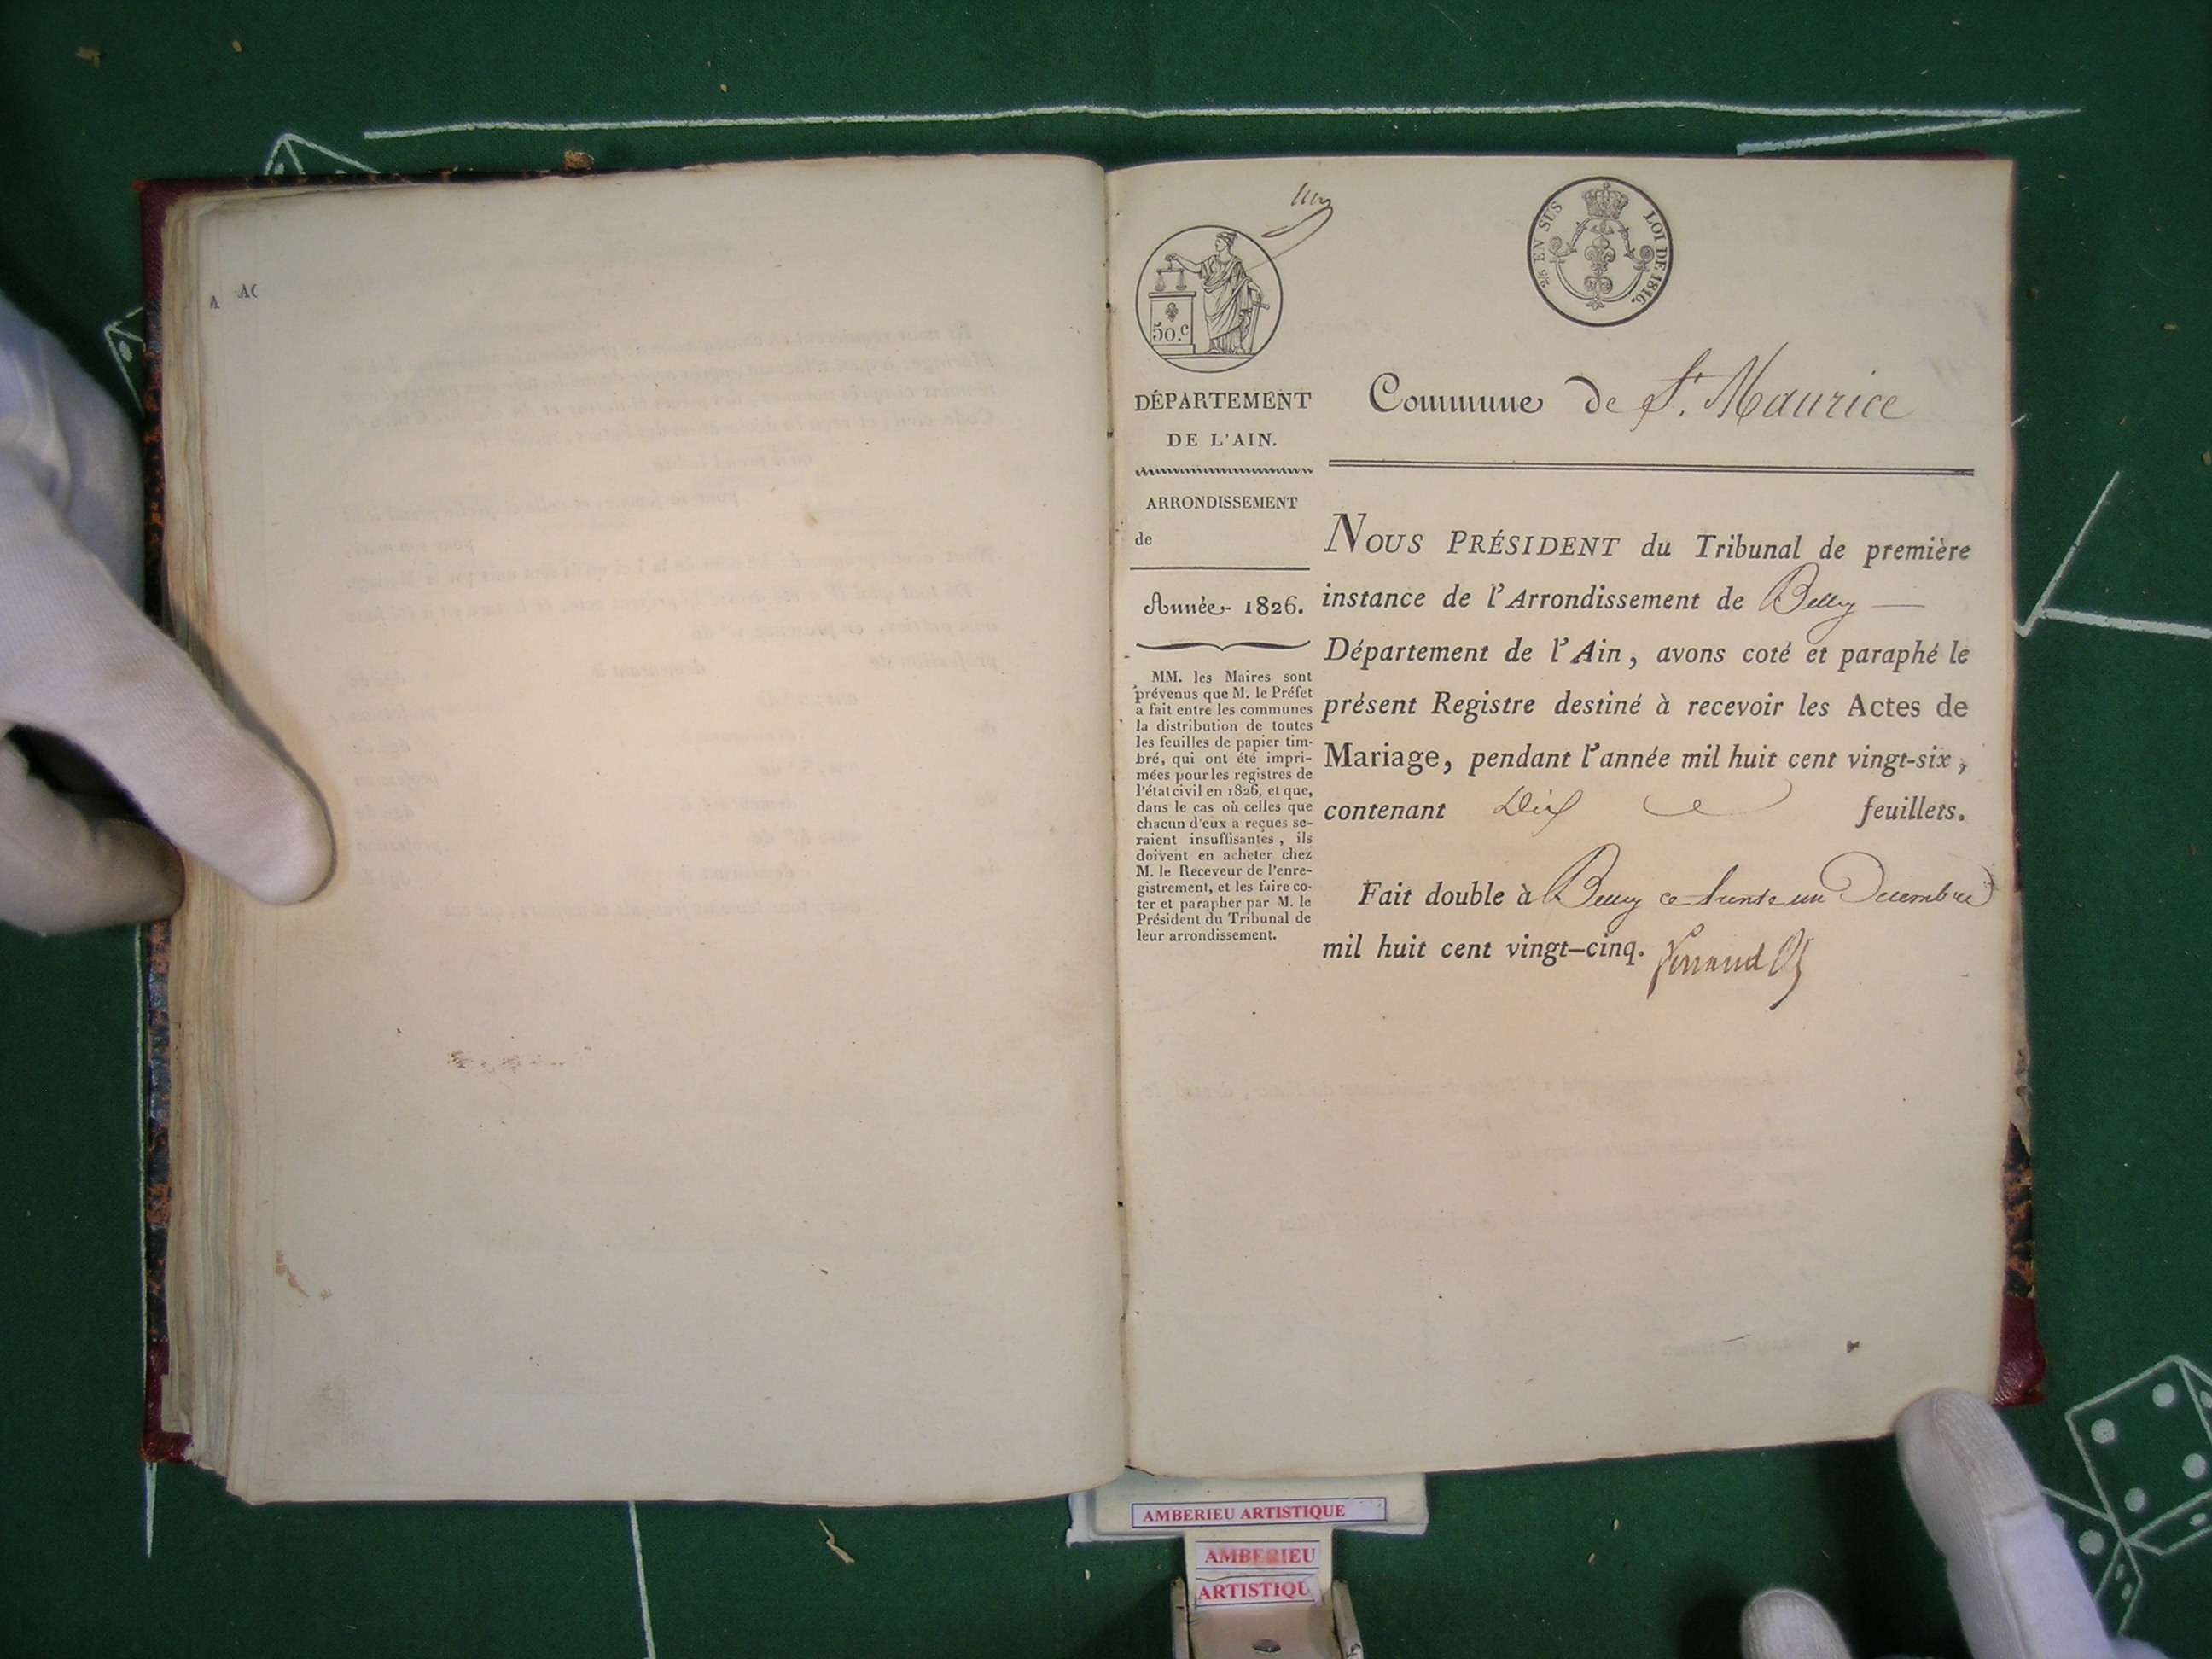 50.c
2/10 EN SUS LOI DE 1816.
DÉPARTEMENT
DE L'AIN.
ARRONDISSEMENT
de
Année 1826.
MM. les Maires sont
prévenus que M. le Préfet
a fait entre les communes
la distribution de toutes
les feuilles de papier tim-
bré, qui ont été impri-
mées pour les registres de
l'état civil en 1826, et que,
dans le cas où celles que
chacun d'eux a reçues se-
raient insuffisantes, ils
doivent en acheter chez
M. le Receveur de l'enre-
gistrement, et les faire co-
ter et parapher par M. le
Président du Tribunal de
leur arrondissement.
Commune de St. Maurice
NOUS PRÉSIDENT du Tribunal de première
instance de l'Arrondissement de Belley
Département de l'Ain, avons coté et paraphé le
présent Registre destiné à recevoir les Actes de
Mariage, pendant l'année mil huit cent vingt-six,
contenant Dix feuillets.
Fait double à Belley ce trente un Decembre
mil huit cent vingt-cinq.
AMBERIEU ARTISTIQUE
AMBERIEU
ARTISTIQU